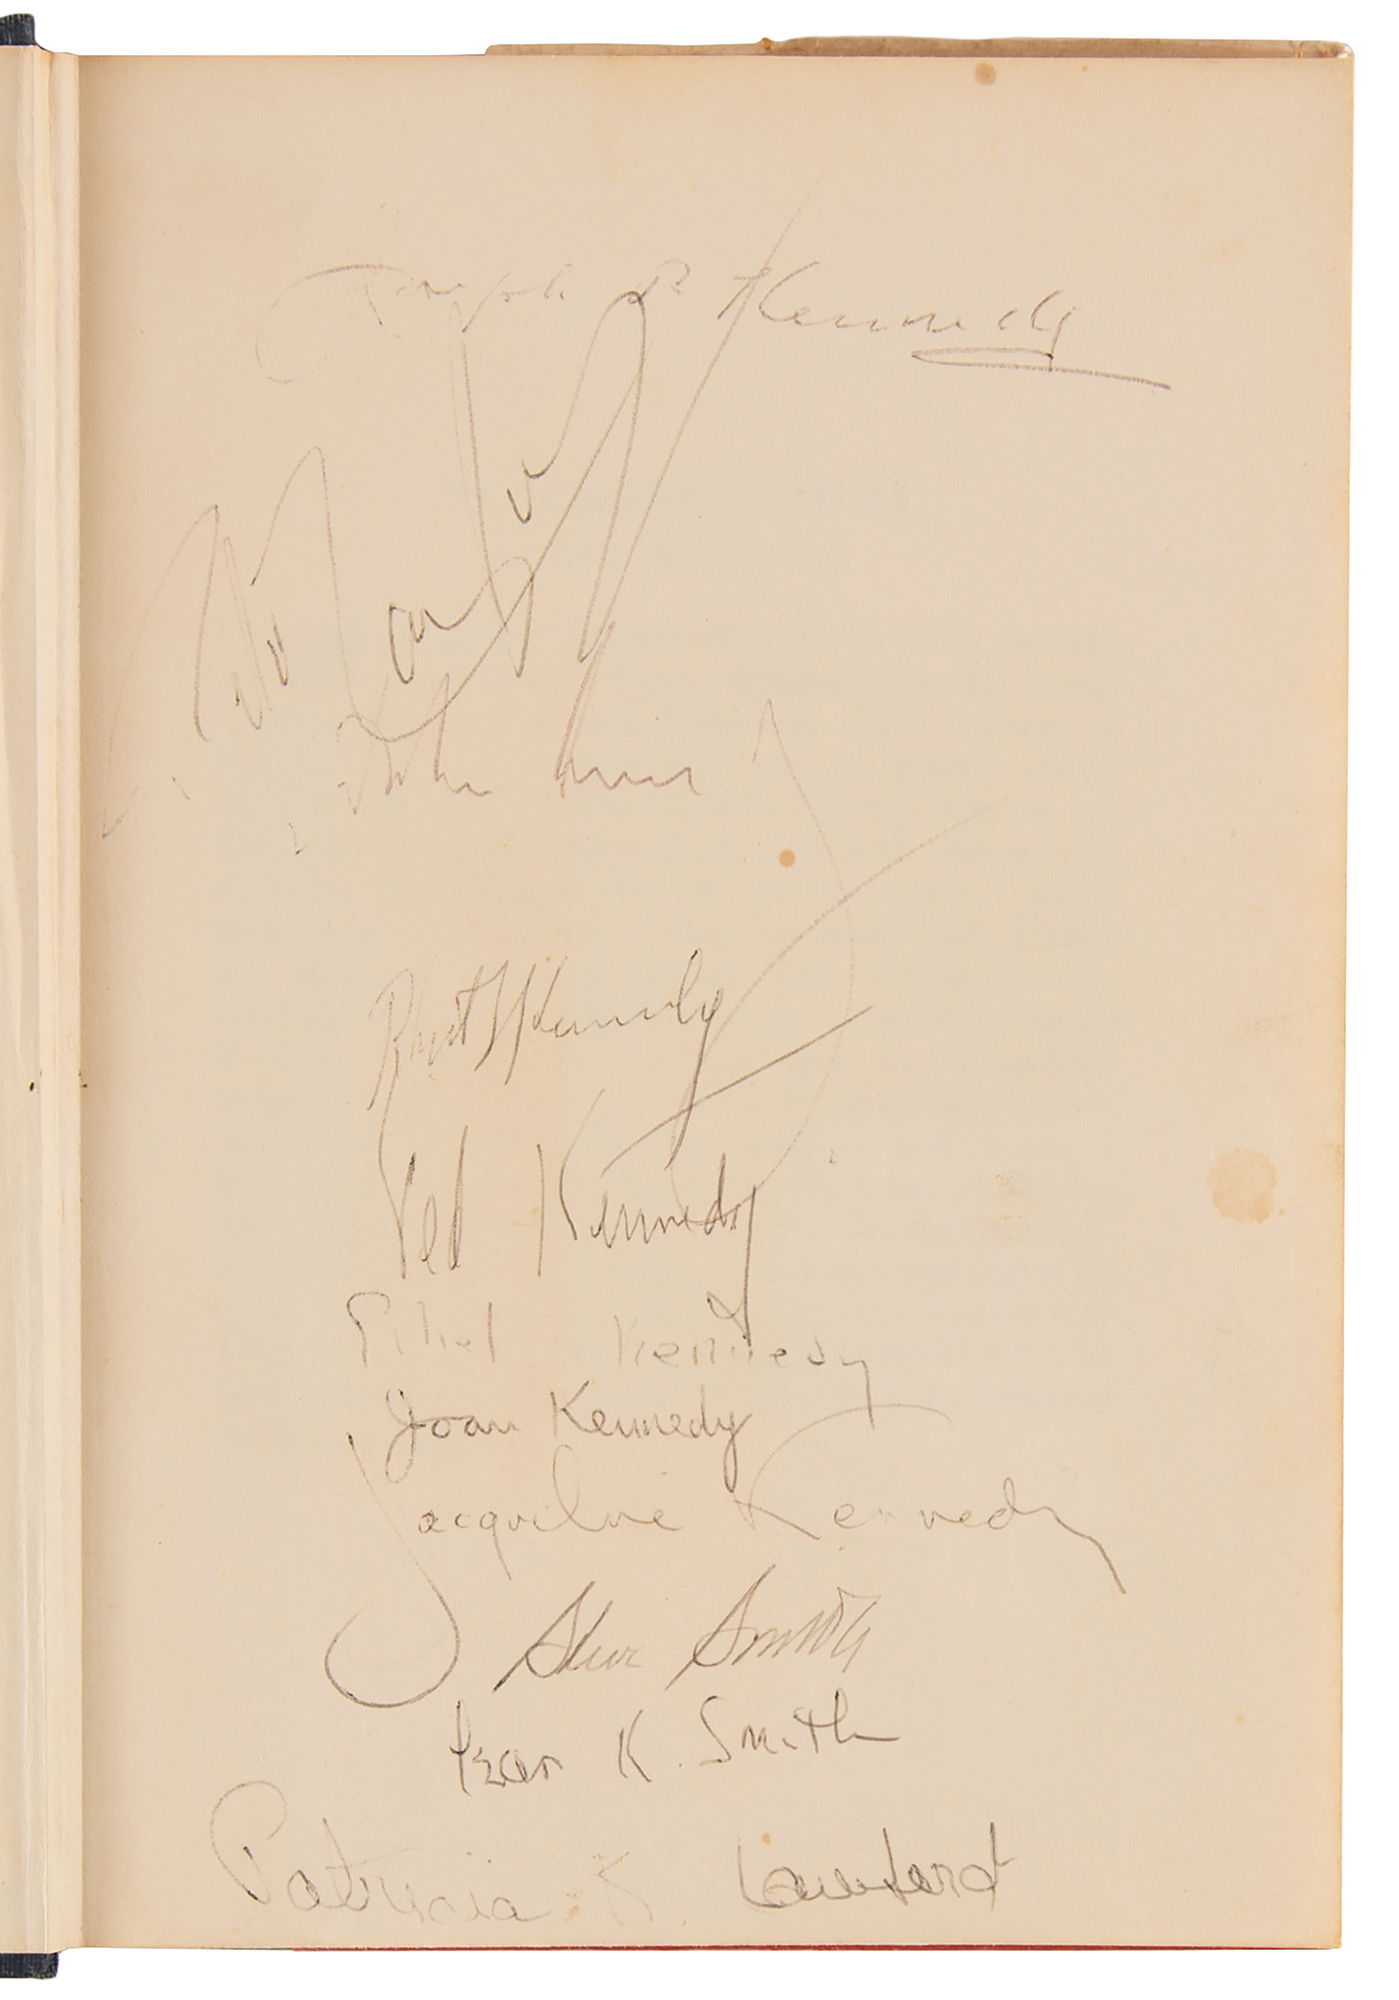 Joseph P Kennedy
Peter Lawford
John Kennedy
Robert F Kennedy
Ted Kennedy
Ethel Kennedy
Joan Kennedy
Jacqueline Kennedy
Steve Smith
Jean K. Smith
Patricia K. Lawford